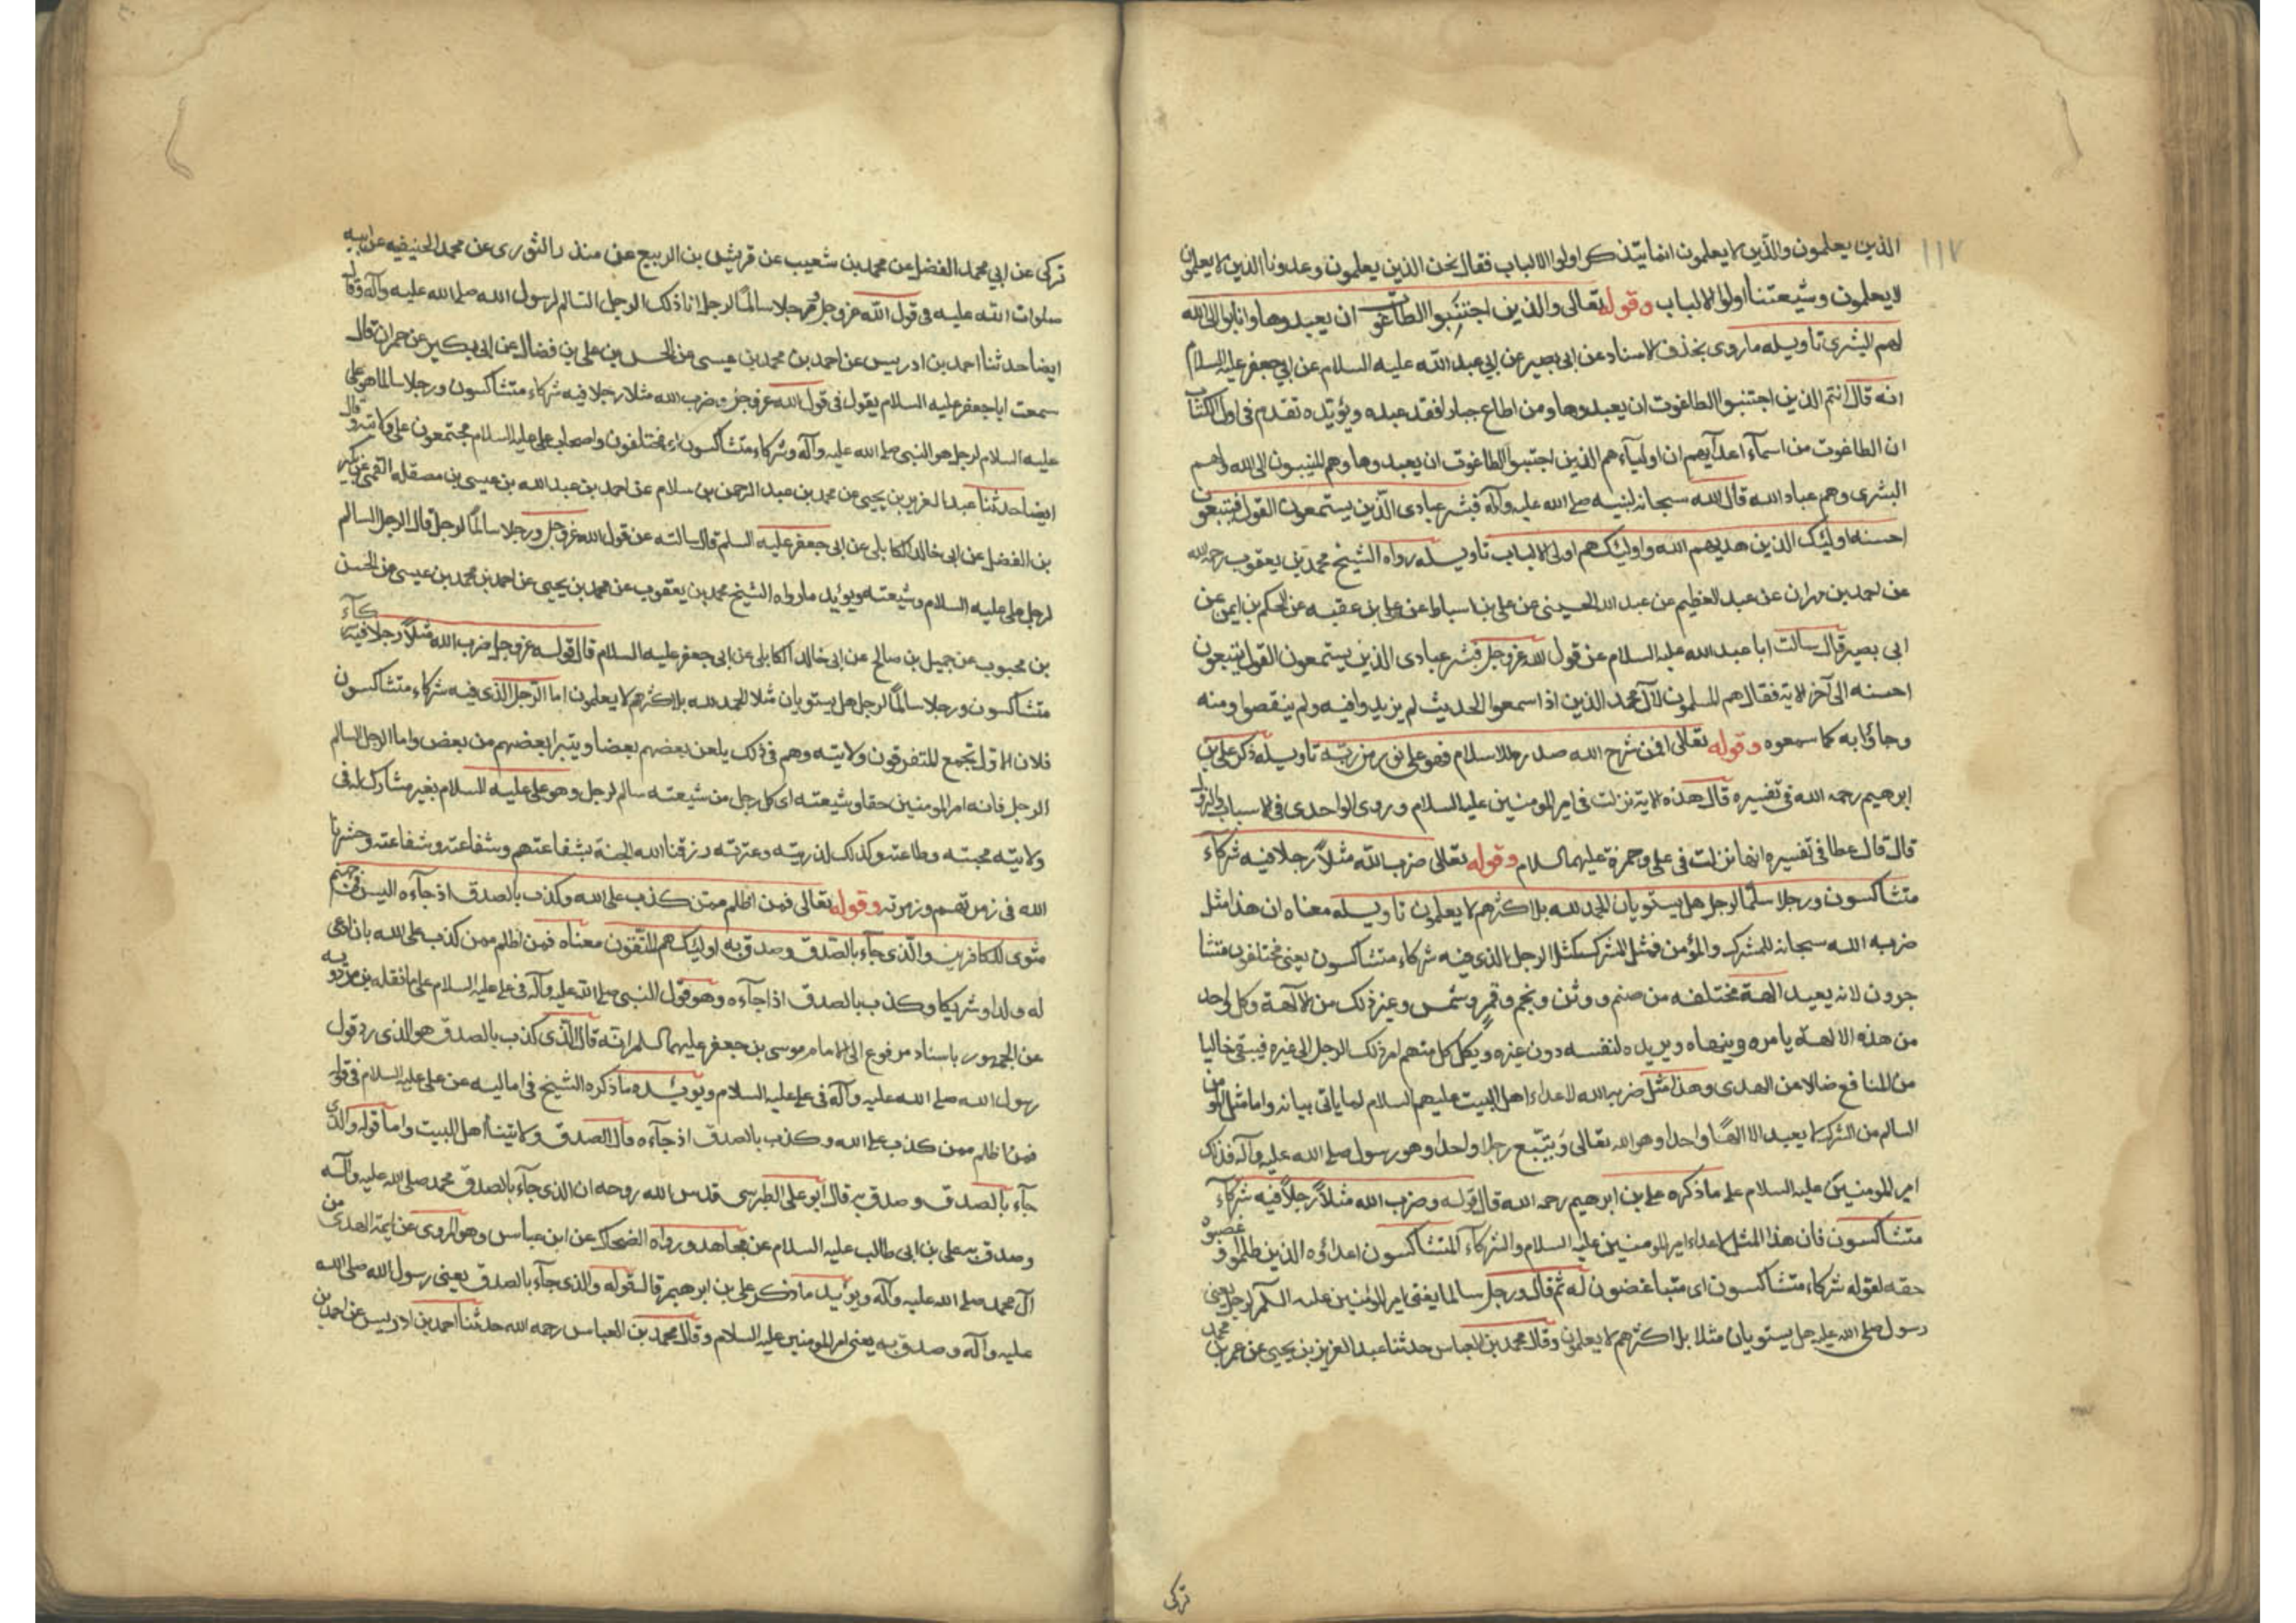 ١١٧
الذين يعلمون والذين لا يعلمون انما يتذكر اولوا الالباب فقال نحن الذين يعلمون وعدونا الذين لا يعلمون
لا يعلمون وشيعتنا اولوا الالباب وقوله تعالى والذين اجتنبوا الطاغوت ان يعبدوها وانابوا الى الله
لهم البشرى تاويله ما روى بحذف الاسناد عن ابى بصير عن ابي عبد الله عليه السلام عن ابي جعفر عليه السلام
انه قال انتم الذين اجتنبوا الطاغوت ان يعبدوها ومن اطاع جبارا فقد عبده ويؤيده تقدم في اول الكتاب
ان الطاغوت من اسمآء اعدآيهم ان اوليآءهم الذين اجتنبوا الطاغوت ان يعبدوها وهم المنيبون الى الله ولهم
البشرى وهم عباد الله قال الله سبحانه لنبيه صلى الله عليه وآله فبشر عبادى الذين يستمعون القول فيتبعون
احسنه اوليك الذين هديهم الله واوليك هم اولى الالباب تاويله رواه الشيخ محمد بن يعقوب رحمه الله
عن احمد بن مهران عن عبد العظيم عن عبد الله الحسينى عن على بن اسباط عن على بن عقبه عن الحكم بن ايمن عن
ابى بصير قال سالت ابا عبد الله عليه السلام عن قول الله عز وجل فبشر عبادى الذين يستمعون القول فيتبعون
احسنه الى آخر الاية فقال هم المسلمون لآل محمد الذين اذا سمعوا الحديث لم يزيدوا فيه ولم ينقصوا ومنه
وجاؤا به كما سمعوه وقوله تعالى افمن شرح الله صدره للاسلام فهو على نور من ربه تاويله ذكر على بن
ابرهيم رحمه الله فى تفسيره قال هذه الاية نزلت فى امير المومنين عليه السلام وروى الواحدى فى الاسباب والنزول
قال قال عطا فى تفسيره انها نزلت فى على وحمزة عليهما السلام وقوله تعالى ضرب الله مثلاً رجلا فيه شركآء
متشاكسون ورجلا سلما لرجل هل يستويان الحمد لله بل اكثرهم لا يعلمون تاويله معناه ان هذا مثل
ضربه الله سبحانه للمشرك والمؤمن فمثل المشرك كمثل الرجل الذى فيه شركاء متشاكسون يعنى مختلفون متشا
جرون لانه يعبد الهة مختلفه من صنم ووثن ونجم وقمر وشمس وغير ذلك من الآلهة وكل واحد
من هذه الالهة يامره وينهاه ويريده لنفسه دون غيره ويكل كل منهم امر ذلك الرجل الى غيره فيبقى خاليا
من المنافع ضالا عن الهدى وهذا مثل ضربه الله لاعداء اهل البيت عليهم السلام لما ياتى بيانه واما مثل المومن
السالم من الشرك لا يعبد الا الهًا واحدا وهو الله تعالى ويتبع رجلا واحدا وهو رسول صلى الله عليه وآله فذلك
امير المومنين عليه السلام على ما ذكره على بن ابرهيم رحمه الله قال قوله وضرب الله مثلاً رجلاً فيه شركآء
متشاكسون فان هذا المثل لاعداء امير المومنين عليه السلام والشركآء المتشاكسون اعداؤه الذين ظلموه وغصبوه
حقه لقوله شركاء متشاكسون اى متباغضون له ثم قال ورجل سالما يعنى امير المؤمنين عليه السلم لرجل يعنى
رسول صلى الله عليه هل يستويان مثلا بل اكثرهم لا يعلمون وقال محمد بن العباس حدثنا عبد العزيز بن يحيى عن عمر بن محمد
تركى
تركى عن ابي محمد الفضل عن محمد بن شعيب عن قريش بن الربيع عن منذر الثورى عن محمد الحنيفيه عن ابيه
صلوات الله عليه فى قول الله عز وجل ورجلا سالمًا لرجل انا ذلك الرجل السالم لرسول الله صلى الله عليه وآله وقال
ايضا حدثنا احمد بن ادريس عن احمد بن محمد بن عيسى عن الحسن بن على بن فضال عن ابى بكير عن حمران قال
سمعت ابا جعفر عليه السلام يقول فى قول الله عز وجل وضرب الله مثلا رجلا فيه شركاء متشاكسون ورجلا سالما هو على
عليه السلام لرجل هو النبى صلى الله عليه وآله وشركاء متشاكسون اى مختلفون واصحاب على عليه السلام مجتمعون على ولايته وقال
ايضا حدثنا عبد العزيز بن يحيى عن محمد بن عبد الرحمن بن سلام عن احمد بن عبد الله بن عيسى بن مصقله القمى عن بكير
بن الفضل عن ابى خالد الكابلى عن ابى جعفر عليه السلم قال سالته عن قول الله عز وجل ورجلا سالمًا لرجل قال الرجل السالم
لرجل على عليه السلام وشيعته ويؤيد ما رواه الشيخ محمد بن يعقوب عن محمد بن يحيى عن احمد بن محمد بن عيسى عن الحسن
بن محبوب عن جميل بن صالح عن ابى خالد الكابلى عن ابى جعفر عليه السلام قال قوله عز وجل ضرب الله مثلاً رجلا فيه شركآء
متشاكسون ورجلا سالمًا لرجل هل يستويان مثلا الحمد لله بل اكثرهم لا يعلمون اما الرجل الذى فيه شركاء متشاكسون
فلان الاول تجمع المتفرقون ولايته وهم فى ذلك يلعن بعضهم بعضا ويتبرا بعضهم من بعض واما الرجل السالم
الرجل فانه امير المومنين حقا وشيعته اى كل رجل من شيعته سالم لرجل وهو على عليه السلام بغير مشارك له فى
ولايته محبته وطاعته وكذلك لذريته وعترته رزقنا الله الجنة بشفاعتهم وشفاعته وشفاعته وحشرنا
الله فى زمرتهم وزمرته وقوله تعالى فمن اظلم ممن كذب على الله وكذب بالصدق اذ جآءه اليس فى جهنم
مثوى للكافرين والذى جآء بالصدق وصدق به اوليك هم المتقون معناه فمن اظلم ممن كذب على الله بان ادعى
له ولدا وشريكا وكذب بالصدق اذا جآءه وهو قول النبى صلى الله عليه وآله فى على عليه السلام على ما نقله بن مردويه
عن الجمهور باسناد مرفوع الى الامام موسى بن جعفر عليهما السلم انه قال الذى كذب بالصدق هو الذى رد قول
رسول الله صلى الله عليه وآله فى على عليه السلام ويؤيده ما ذكره الشيخ فى اماليه عن على عليه السلام فى قوله
فمن اظلم ممن كذب على الله وكذب بالصدق اذ جآءه قال الصدق ولايتنا اهل البيت واما قوله والذى
جآء بالصدق وصدق به قال ابو على الطبرسى قدس الله روحه ان الذى جآء بالصدق محمد صلى الله عليه وآله
وصدق به على بن ابى طالب عليه السلام عن مجاهد ورواه الضحاك عن ابن عباس وهو المروى عن ايمة الهدى من
آل محمد صلى الله عليه وآله ويؤيد ما ذكر على بن ابرهيم قال قوله والذى جآء بالصدق يعنى رسول الله صلى الله
عليه وآله وصدق به يعنى امير المومنين عليه السلام وقال محمد بن العباس رحمه الله حدثنا احمد بن ادريس عن احمد بن